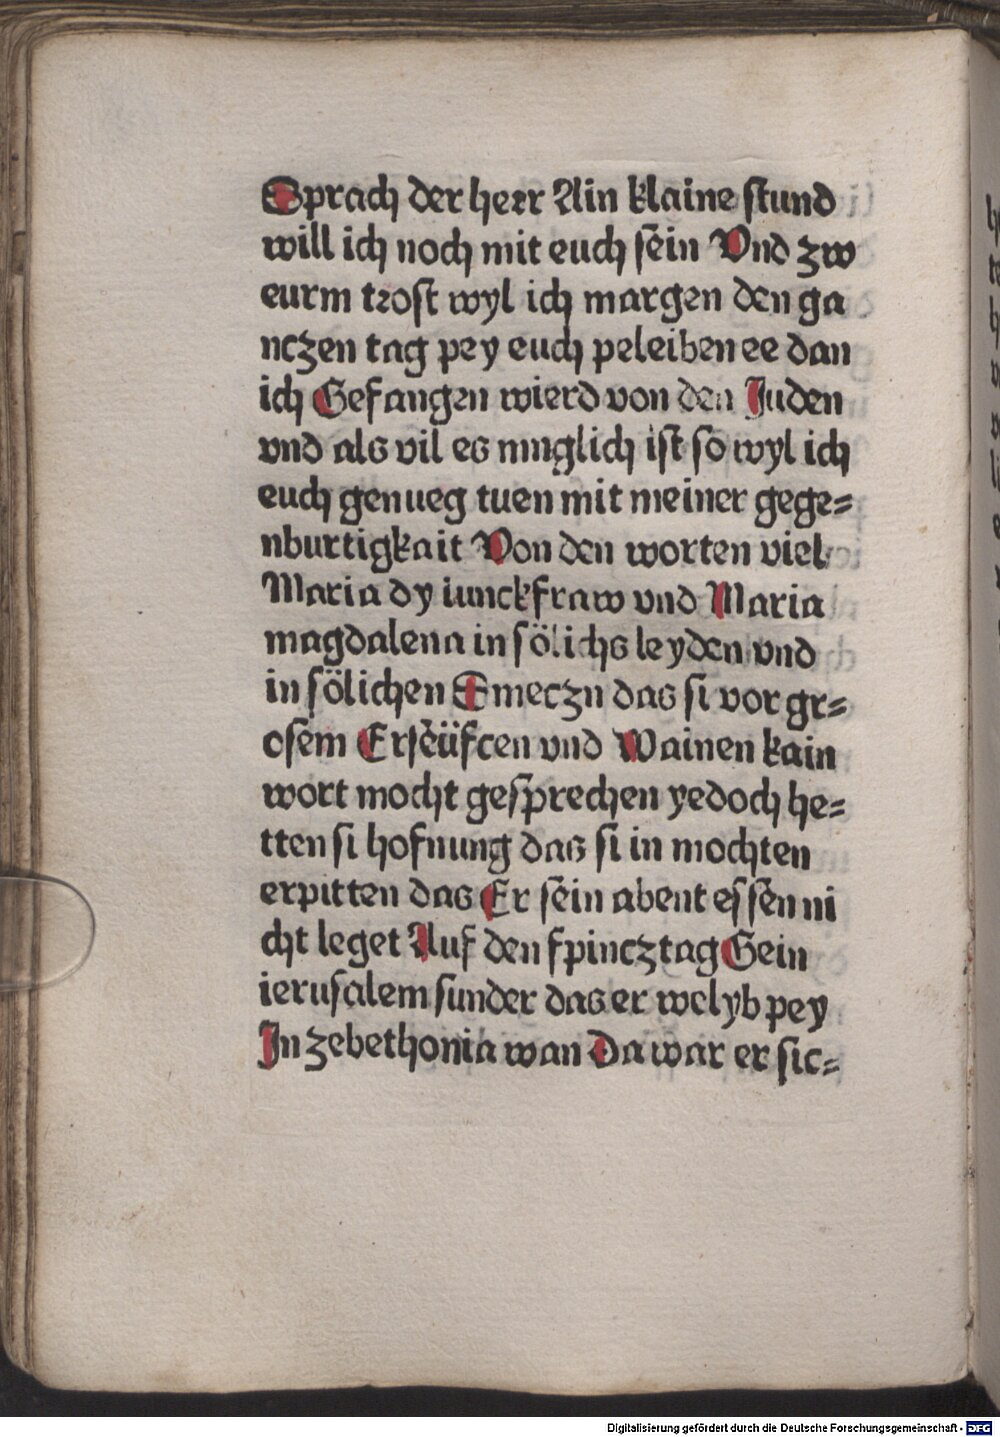 Sprach der herr Ain klaine stund
will ich noch mit euch sein Vnd zw
eurm trost wyl ich margen den ga
nczen tag pey euch peleiben ee dan
ich Gefangen wierd von den Juden
vnd als vil es muglich ist so wyl ich
euch genueg tuen mit meiner gege=
nburtigkait Von den worten viel
Maria dy iunckfraw vnd Maria
magdalena in sölichs leyden vnd
in sölichen Smeczn das si vor gr=
osem Erseüfcen vnd Wainen kain
wort mocht gesprechen yedoch he=
tten si hofnung das si in mochten
erpitten das Er sein abent essen ni
cht leget Auf den fpincztag Gein
ierusalem sunder das er welyb pey
In zebethonia wan Da war er sic=
Digitalisierung gefördert durch die Deutsche Forschungsgemeinschaft - DFG